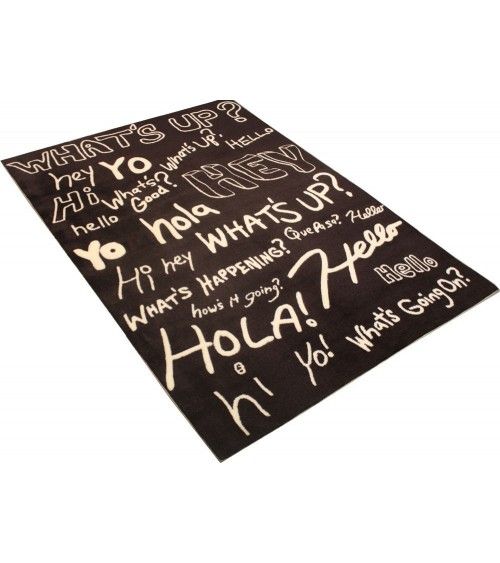 WHAT'S UP?
hey YO
What's Up?
HELLO
Hi
What's Good?
HEY
hello
Yo hola
WHAT'S UP?
Hi hey
Que Paso?
Hello
WHAT'S HAPPENING?
how's it going?
Hello
Hello
HOLA!
What's Going On?
hi Yo!